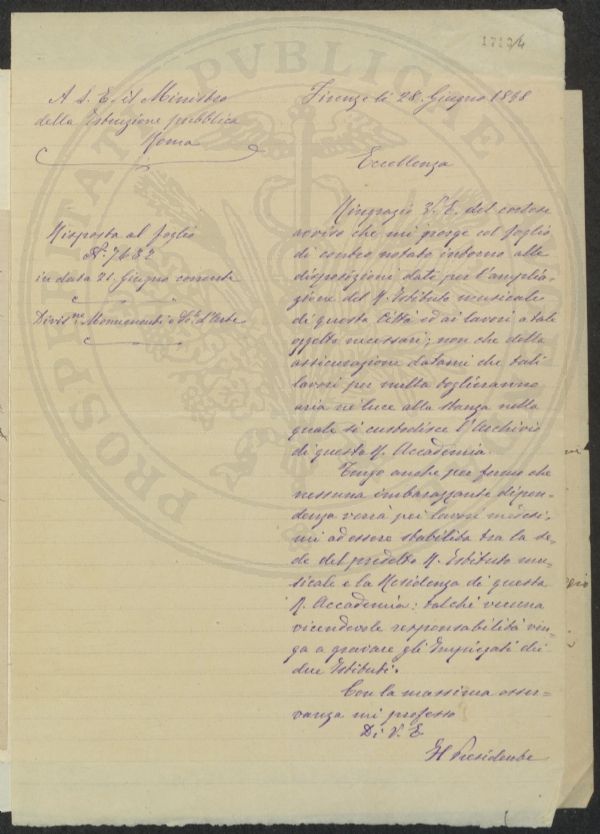 1713/4
A S. E. il Ministro
della Istruzione pubblica
Roma
Risposta al foglio
N.º 7632
in data 21 Giugno corrente
Divis.ne Monumenti e Sc.e d'Arte
Firenze li 28. Giugno 18
Eccellenza
Ringrazio V. E. del cortese
avviso che mi porge col foglio
di contro notato intorno alle
disposizioni date per l'amplia-
zione del R. Istituto musicale
di questa Città ed ai lavori a tale
oggetto necessari; non che della
assicurazione datami che tali
lavori per nulla toglieranno
aria nè luce alla stanza nella
quale si custodisce l'Archivio
di questa R. Accademia.
Tengo anche per fermo che
nessuna imbarazzante dipen-
denza verrà pei lavori medesi-
mi ad essere stabilita tra la se-
de del predetto R. Istituto mu-
sicale e la Residenza di questa
R. Accademia: talchè veruna
vicendevole responsabilità ven-
ga a gravare gli Impiegati dei
due Istituti.
Con la massima osser-
vanza mi professo
Di V. E.
Il Presidente
PROSPERITAT PVBLICE